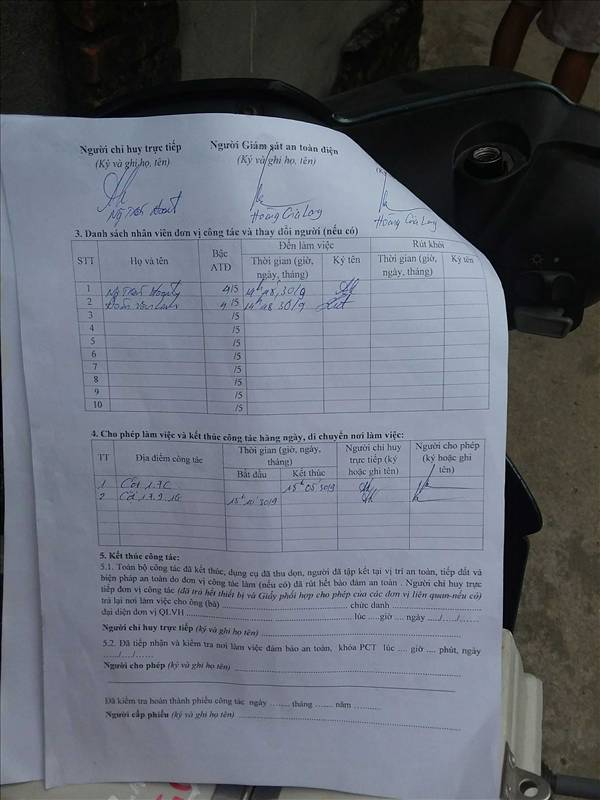 Người chỉ huy trực tiếp Người Giám sát an toàn điện
(Ký và ghi họ, tên) (Ký và ghi họ, tên) (Ký
Hoàng Gia Long Hoàng Gia Long
3. Danh sách nhân viên đơn vị công tác và thay đổi người (nếu có)
STT Họ và tên Bậc ATĐ Đến làm việc Rút khỏi
Thời gian (giờ, ngày, tháng) Ký tên Thời gian (giờ, ngày, tháng) Ký tên
1 4/5 14h48, 30/9
2 4/5 14h48 30/9
3 /5
4 /5
5 /5
6 /5
7 /5
8 /5
9 /5
10 /5
4. Cho phép làm việc và kết thúc công tác hàng ngày, di chuyển nơi làm việc:
TT Địa điểm công tác Thời gian (giờ, ngày, tháng) Người chỉ huy trực tiếp (ký hoặc ghi tên) Người cho phép (ký hoặc ghi tên)
Bắt đầu Kết thúc
1 Cột 17C 15h05' 30/9
2 Cột 15h10' 30/9
5. Kết thúc công tác:
5.1. Toàn bộ công tác đã kết thúc, dụng cụ đã thu dọn, người đã tập kết tại vị trí an toàn, tiếp đất và
biện pháp an toàn do đơn vị công tác làm (nếu có) đã rút hết bảo đảm an toàn . Người chỉ huy trực
tiếp đơn vị công tác (đã trả hết thiết bị và Giấy phối hợp cho phép của các đơn vị liên quan-nếu có)
trả lại nơi làm việc cho ông (bà) ........ chức danh ........
đại diện đơn vị QLVH ........ lúc ....giờ .... ngày ..../..../......
Người chỉ huy trực tiếp (ký và ghi họ tên) ........
5.2. Đã tiếp nhận và kiểm tra nơi làm việc đảm bảo an toàn, khóa PCT lúc .... giờ .... phút, ngày
..../..../......
Người cho phép (ký và ghi họ tên) ........
Đã kiểm tra hoàn thành phiếu công tác ngày ....... tháng ...... năm .........
Người cấp phiếu (ký và ghi họ tên) ........